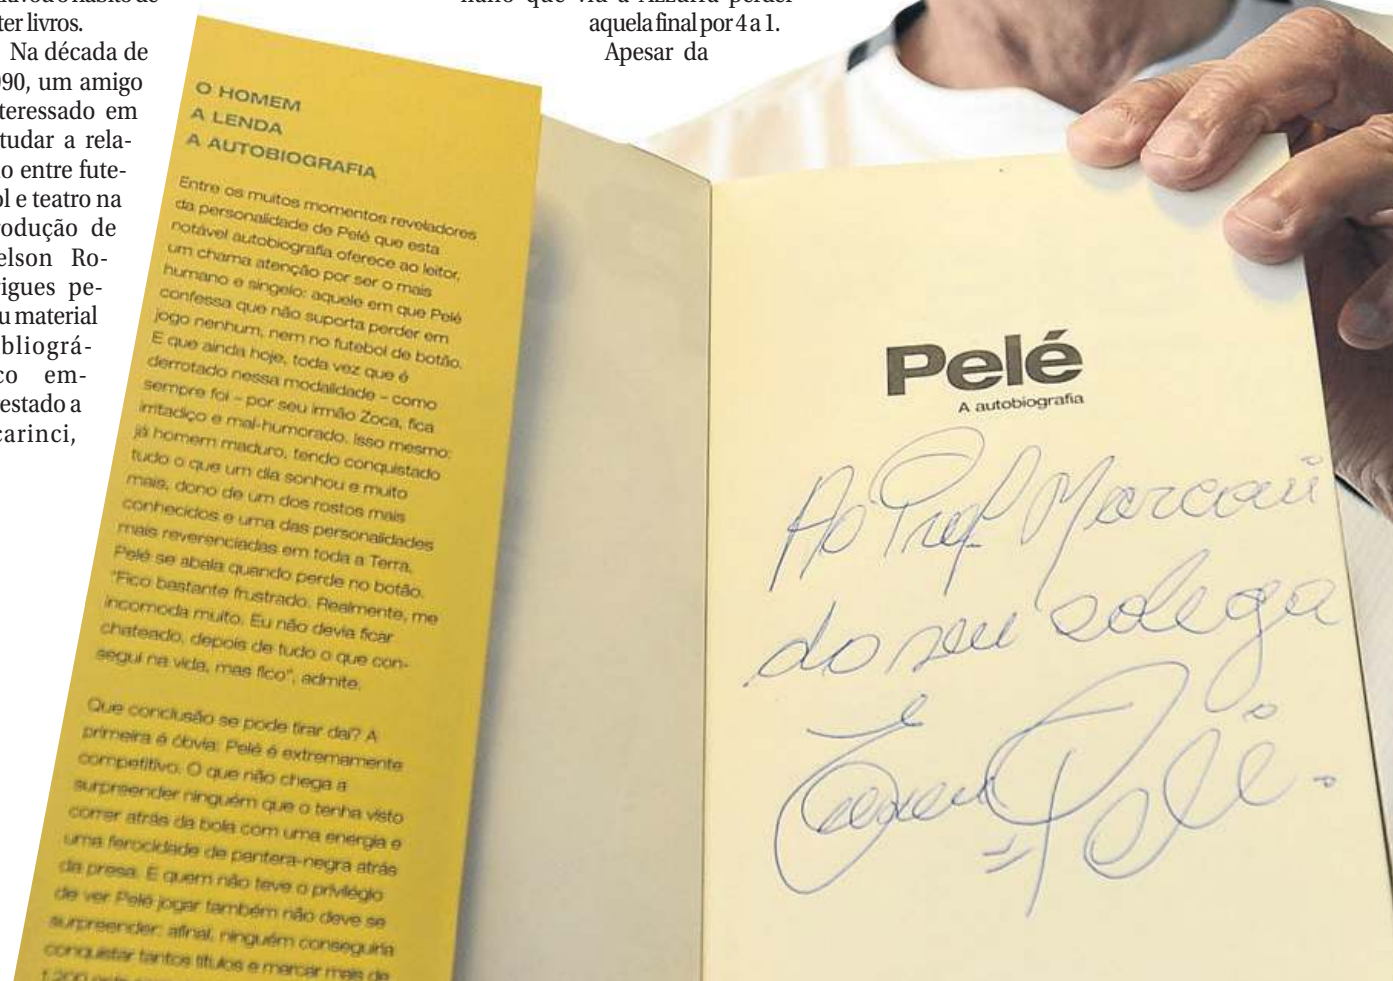 ter livros.
Na década de
990, um amigo
teressado em
tudar a rela-
o entre fute-
ol e teatro na
rodução de
elson Ro-
igues pe-
u material
bliográ-
co em-
estado a
carinci,
aquela final por 4 a 1.
Apesar da
O HOMEM
A LENDA
A AUTOBIOGRAFIA
Entre os muitos momentos reveladores
da personalidade de Pelé que esta
notável autobiografia oferece ao leitor,
um chama atenção por ser o mais
humano e singelo: aquele em que Pelé
confessa que não suporta perder em
jogo nenhum, nem no futebol de botão.
E que ainda hoje, toda vez que é
derrotado nessa modalidade – como
sempre foi – por seu irmão Zoca, fica
irritadiço e mal-humorado. Isso mesmo:
já homem maduro, tendo conquistado
tudo o que um dia sonhou e muito
mais, dono de um dos rostos mais
conhecidos e uma das personalidades
mais reverenciadas em toda a Terra,
Pelé se abala quando perde no botão.
"Fico bastante frustrado. Realmente, me
incomoda muito. Eu não devia ficar
chateado, depois de tudo o que con-
segui na vida, mas fico", admite.
Que conclusão se pode tirar daí? A
primeira é óbvia: Pelé é extremamente
competitivo. O que não chega a
surpreender ninguém que o tenha visto
correr atrás da bola com uma energia e
uma ferocidade de pantera-negra atrás
da presa. E quem não teve o privilégio
de ver Pelé jogar também não deve se
surpreender: afinal, ninguém conseguiria
conquistar tantos títulos e marcar mais de
Pelé
A autobiografia
Ao Prof
do seu colega
Pelé